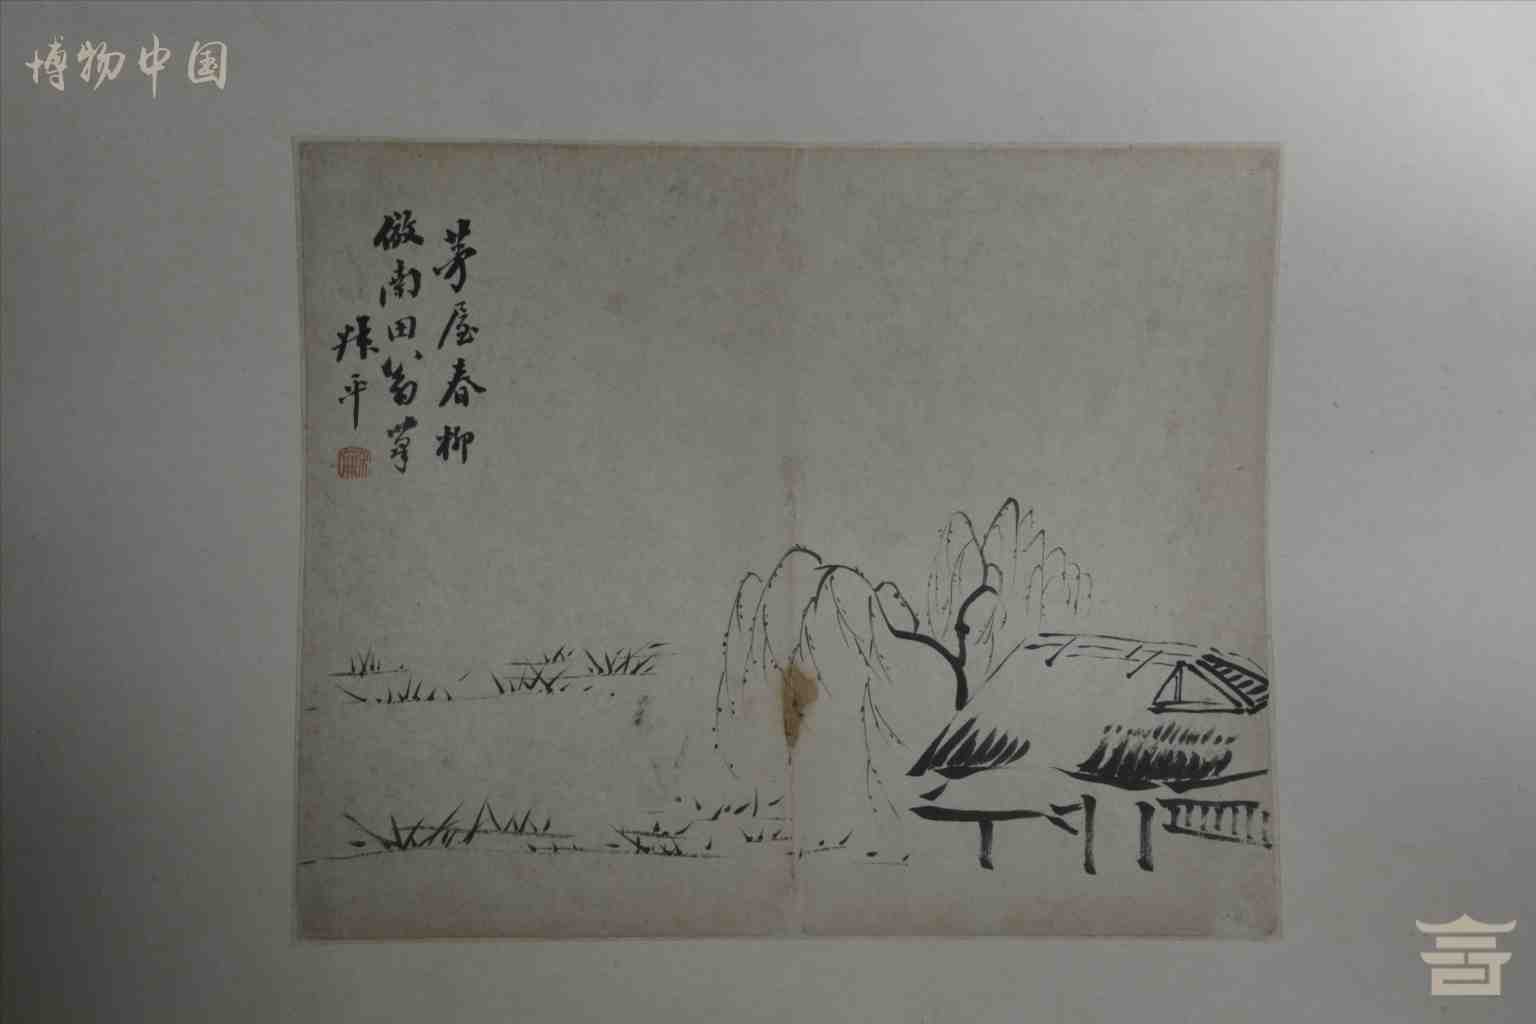 博物中国
茅屋春柳
倣南田翁筆